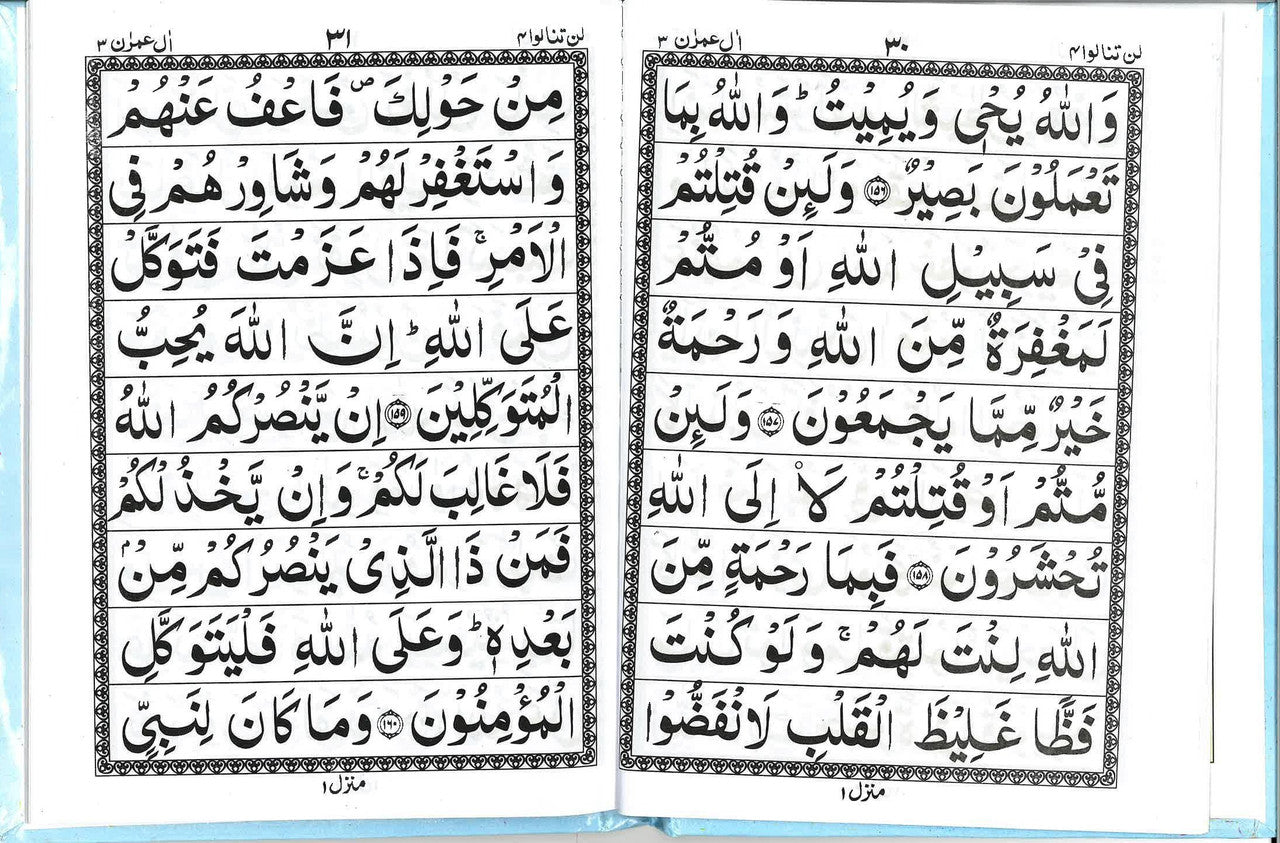 لن تنالوا ۴ ۳۰ اٰل عمرٰن ۳
وَاللّٰهُ يُحْيٖ وَيُمِيْتُ ؕ وَاللّٰهُ بِمَا
تَعْمَلُوْنَ بَصِيْرٌ ﴿۱۵۶﴾ وَلَئِنْ قُتِلْتُمْ
فِيْ سَبِيْلِ اللّٰهِ اَوْ مُتُّمْ
لَمَغْفِرَةٌ مِّنَ اللّٰهِ وَرَحْمَةٌ
خَيْرٌ مِّمَّا يَجْمَعُوْنَ ﴿۱۵۷﴾ وَلَئِنْ
مُّتُّمْ اَوْ قُتِلْتُمْ لَاۡ اِلَى اللّٰهِ
تُحْشَرُوْنَ ﴿۱۵۸﴾ فَبِمَا رَحْمَةٍ مِّنَ
اللّٰهِ لِنْتَ لَهُمْ ۚ وَلَوْ كُنْتَ
فَظًّا غَلِيْظَ الْقَلْبِ لَانْفَضُّوْا
منزل ۱
لن تنالوا ۴ ۳۱ اٰل عمرٰن ۳
مِنْ حَوْلِكَ ۪ فَاعْفُ عَنْهُمْ
وَاسْتَغْفِرْ لَهُمْ وَشَاوِرْهُمْ فِي
الْاَمْرِ ۚ فَاِذَا عَزَمْتَ فَتَوَكَّلْ
عَلَى اللّٰهِ ؕ اِنَّ اللّٰهَ يُحِبُّ
الْمُتَوَكِّلِيْنَ ﴿۱۵۹﴾ اِنْ يَّنْصُرْكُمُ اللّٰهُ
فَلَا غَالِبَ لَكُمْ ۚ وَاِنْ يَّخْذُلْكُمْ
فَمَنْ ذَا الَّذِيْ يَنْصُرُكُمْ مِّنْۢ
بَعْدِهٖ ؕ وَعَلَى اللّٰهِ فَلْيَتَوَكَّلِ
الْمُؤْمِنُوْنَ ﴿۱۶۰﴾ وَمَا كَانَ لِنَبِيٍّ
منزل ۱